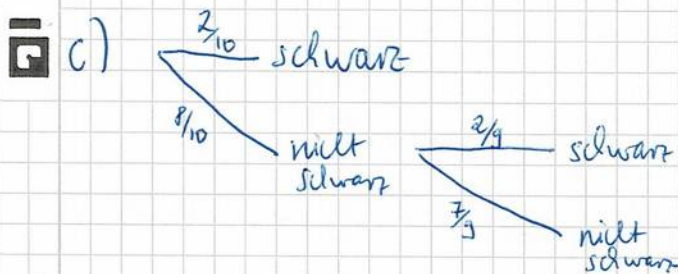 c)
2/10 schwarz
8/10
nicht
schwarz
2/9 schwarz
7/9
nicht
schwarz